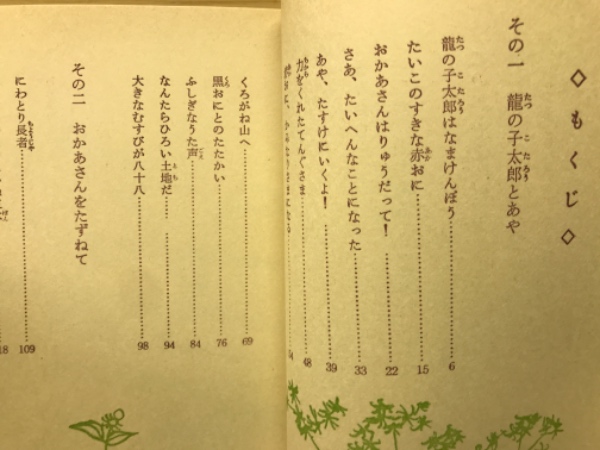 ◇もくじ◇
その一 龍の子太郎とあや
龍の子太郎はなまけんぼう……6
たいこのすきな赤おに……15
おかあさんはりゅうだって!……22
さあ、たいへんなことになった……33
あや、たすけにいくよ!……39
力をくれたてんぐさま……48
くろがね山へ……69
黒おにとのたたかい……76
ふしぎなうた声……84
なんたらひろい土地だ……94
大きなむすびが八十八……98
その二 おかあさんをたずねて
にわとり長者……109